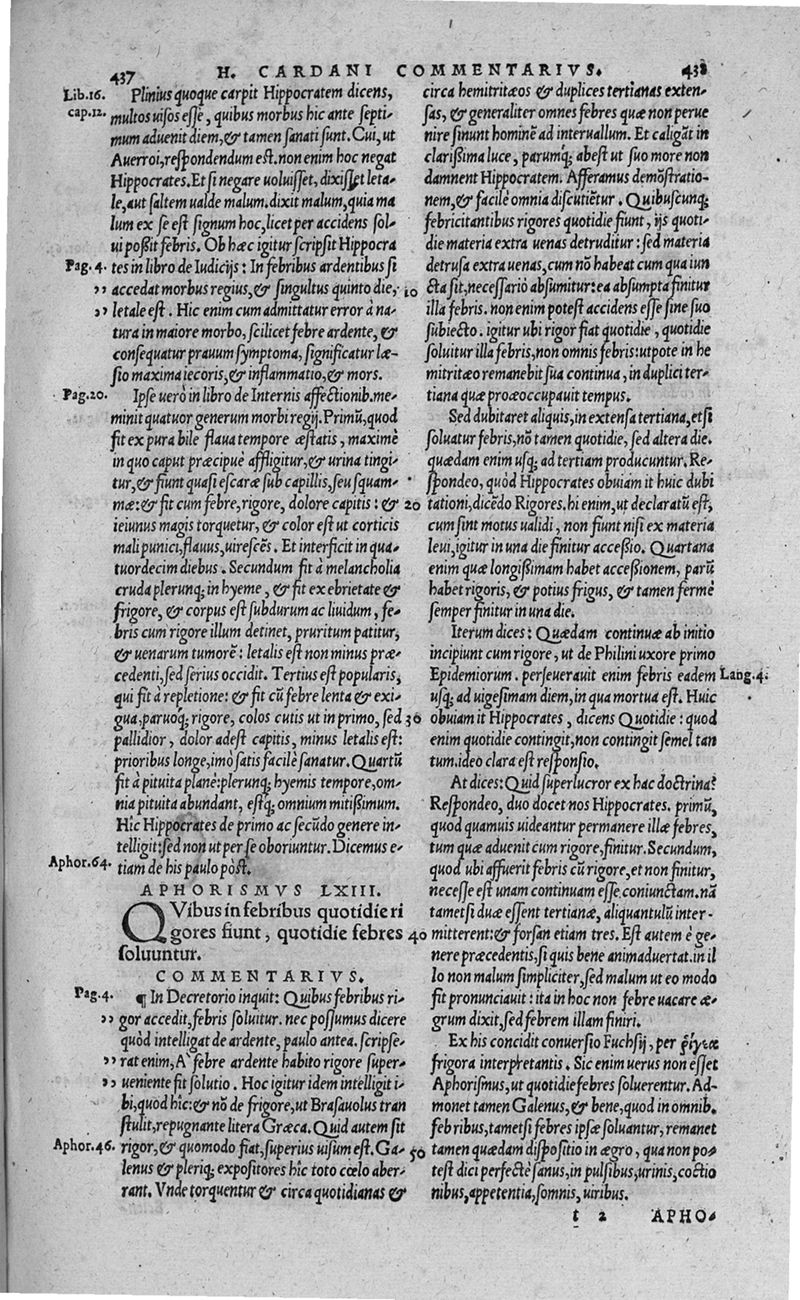 437 H. CARDANI COMMENTARIVS. 438
Lib.16. Plinius quoque carpit Hippocratem dicens,
cap.12. multos uisos esse, quibus morbus hic ante septi-
mum aduenit diem, & tamen sanati sunt. Cui, ut
Auerroi, respondendum est. non enim hoc negat
Hippocrates. Et si negare uoluisset, dixisset leta-
le, aut saltem ualde malum. dixit malum, quia ma
lum ex se est signum hoc, licet per accidens sol-
ui possit febris. Ob hæc igitur scripsit Hippocra
Pag.4. tes in libro de Iudicijs: In febribus ardentibus si
,, accedat morbus regius, & singultus quinto die, 10
,, letale est. Hic enim cum admittatur error à na-
tura in maiore morbo, scilicet febre ardente, &
consequatur prauum symptoma, significatur læ-
sio maxima iecoris, & inflammatio, & mors.
Pag.20. Ipse uerò in libro de Internis affectionib. me-
minit quatuor generum morbi regij. Primū, quod
fit ex pura bile flaua tempore æstatis, maximè
in quo caput præcipuè affligitur, & urina tingi-
tur, & fiunt quasi escaræ sub capillis, seu squam-
mæ: & fit cum febre, rigore, dolore capitis: & 20
ieiunus magis torquetur, & color est ut corticis
mali punici, flauus, uirescēs. Et interficit in qua-
tuordecim diebus. Secundum fit à melancholia
cruda plerunq; in hyeme, & fit ex ebrietate &
frigore, & corpus est subdurum ac liuidum, fe-
bris cum rigore illum detinet, pruritum patitur,
& uenarum tumorē: letalis est non minus præ-
cedenti, sed serius occidit. Tertius est popularis,
qui fit à repletione: & fit cū febre lenta & exi-
gua, paruoq; rigore, colos cutis ut in primo, sed 30
pallidior, dolor adest capitis, minus letalis est:
prioribus longe, imò satis facilè sanatur. Quartū
fit à pituita planè: plerunq; hyemis tempore, om-
nia pituita abundant, estq; omnium mitissimum.
Hic Hippocrates de primo ac secūdo genere in-
telligit: sed non ut per se oboriuntur. Dicemus e-
Aphor.64. tiam de his paulo pòst.
APHORISMVS LXIII.
QVibus in febribus quotidie ri
gores fiunt, quotidie febres 40
soluuntur.
COMMENTARIVS.
Pag.4. ¶ In Decretorio inquit: Quibus febribus ri-
,, gor accedit, febris soluitur. nec possumus dicere
quòd intelligat de ardente, paulo antea. scripse-
,, rat enim, A febre ardente habito rigore super-
,, ueniente fit solutio. Hoc igitur idem intelligit i-
bi, quod hîc: & nō de frigore, ut Brasauolus tran
stulit, repugnante litera Græca. Quid autem sit
Aphor.46. rigor, & quomodo fiat, superius uisum est. Ga- 50
lenus & pleriq; expositores hîc toto cœlo aber-
rant. Vnde torquentur & circa quotidianas &
circa hemitritæos & duplices tertianas exten-
sas, & generaliter omnes febres quæ non perue
nire sinunt hominē ad interuallum. Et caligāt in
clarissima luce, parumq́; abest ut suo more non
damnent Hippocratem. Afferamus demōstratio-
nem, & facilè omnia discutiētur. Quibuscunq;
febricitantibus rigores quotidie fiunt, ijs quoti-
die materia extra uenas detruditur: sed materia
detrusa extra uenas, cum nō habeat cum qua iun
cta sit, necessariò absumitur: ea absumpta finitur
illa febris. non enim potest accidens esse sine suo
subiecto. igitur ubi rigor fiat quotidie, quotidie
soluitur illa febris, non omnis febris: utpote in he
mitritæo remanebit sua continua, in duplici ter-
tiana quæ proæoccupauit tempus.
Sed dubitaret aliquis, in extensa tertiana, etsi
soluatur febris, nō tamen quotidie, sed altera die.
quædam enim usq; ad tertiam producuntur. Re-
spondeo, quòd Hippocrates obuiam it huic dubi
tationi, dicēdo Rigores. hi enim, ut declaratū est,
cum sint motus ualidi, non fiunt nisi ex materia
leui, igitur in una die finitur accessio. Quartana
enim quæ longissimam habet accessionem, parū
habet rigoris, & potius frigus, & tamen fermè
semper finitur in una die.
Iterum dices: Quædam continuæ ab initio
incipiunt cum rigore, ut de Philini uxore primo
Epidemiorum. perseuerauit enim febris eadem Lang.4.
usq; ad uigesimam diem, in qua mortua est. Huic
obuiam it Hippocrates, dicens Quotidie: quod
enim quotidie contingit, non contingit semel tan
tum. ideo clara est responsio.
At dices: Quid superlucror ex hac doctrina?
Respondeo, duo docet nos Hippocrates. primū,
quod quamuis uideantur permanere illæ febres,
tum quæ aduenit cum rigore, finitur. Secundum,
quod ubi affuerit febris cū rigore, et non finitur,
necesse est unam continuam esse coniunctam. nā
tametsi duæ essent tertianæ, aliquantulū inter-
mitterent: & forsan etiam tres. Est autem è ge-
nere præcedentis, si quis bene animaduertat. in il
lo non malum simpliciter, sed malum ut eo modo
fit pronunciauit: ita in hoc non febre uacare æ-
grum dixit, sed febrem illam finiri.
Ex his concidit conuersio Fuchsij, per ῥίγεα
frigora interpretantis. Sic enim uerus non esset
Aphorismus, ut quotidie febres soluerentur. Ad-
monet tamen Galenus, & bene, quod in omnib.
febribus, tametsi febres ipsæ soluantur, remanet
tamen quædam dispositio in ægro, qua non po-
test dici perfectè sanus, in pulsibus, urinis, coctio
nibus, appetentia, somnis, uiribus.
t 2 APHO-